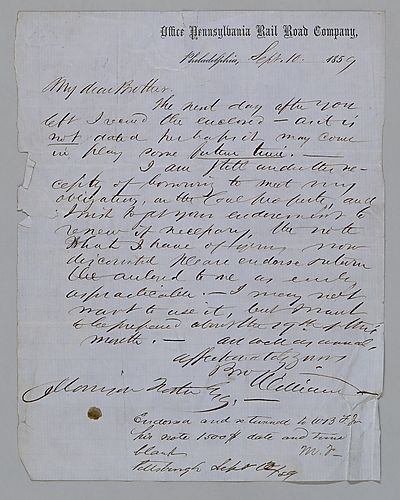 Office Pennsylvania Rail Road Company,
Philadelphia, Sept. 10. 1859
My dear Brother.
The next day after you
left I recd the enclosed — as it is
not dated perhaps it may come
in play some future time. —
I am still under the ne-
cessity of borrowing to meet my
obligations, on the Coal property, and
I wish to get your endorsement to
renew if necessary, the note
What I have of yours now
discounted please endorse return
the enclosed to me as early
as practicable. — I may not
want to use it, but I want
to be prepared about the 19th of this
month. — all well as usual,
affectionately yours
Bro William
Morrison Foster Esq. —
Endorsed and returned to WB F Jr
his note 1500$ date and time
blank M. F.
Pittsburgh Sept /59